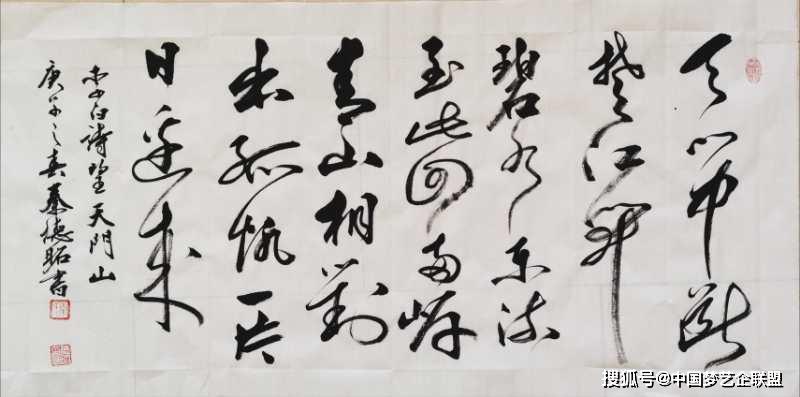 天门中斷
楚江开
碧水东流
至此回兩岸
青山相對
出孤帆一片
日邊來
李白詩望天門山
庚子之春秦德昭書
搜狐号@中国梦艺企联盟